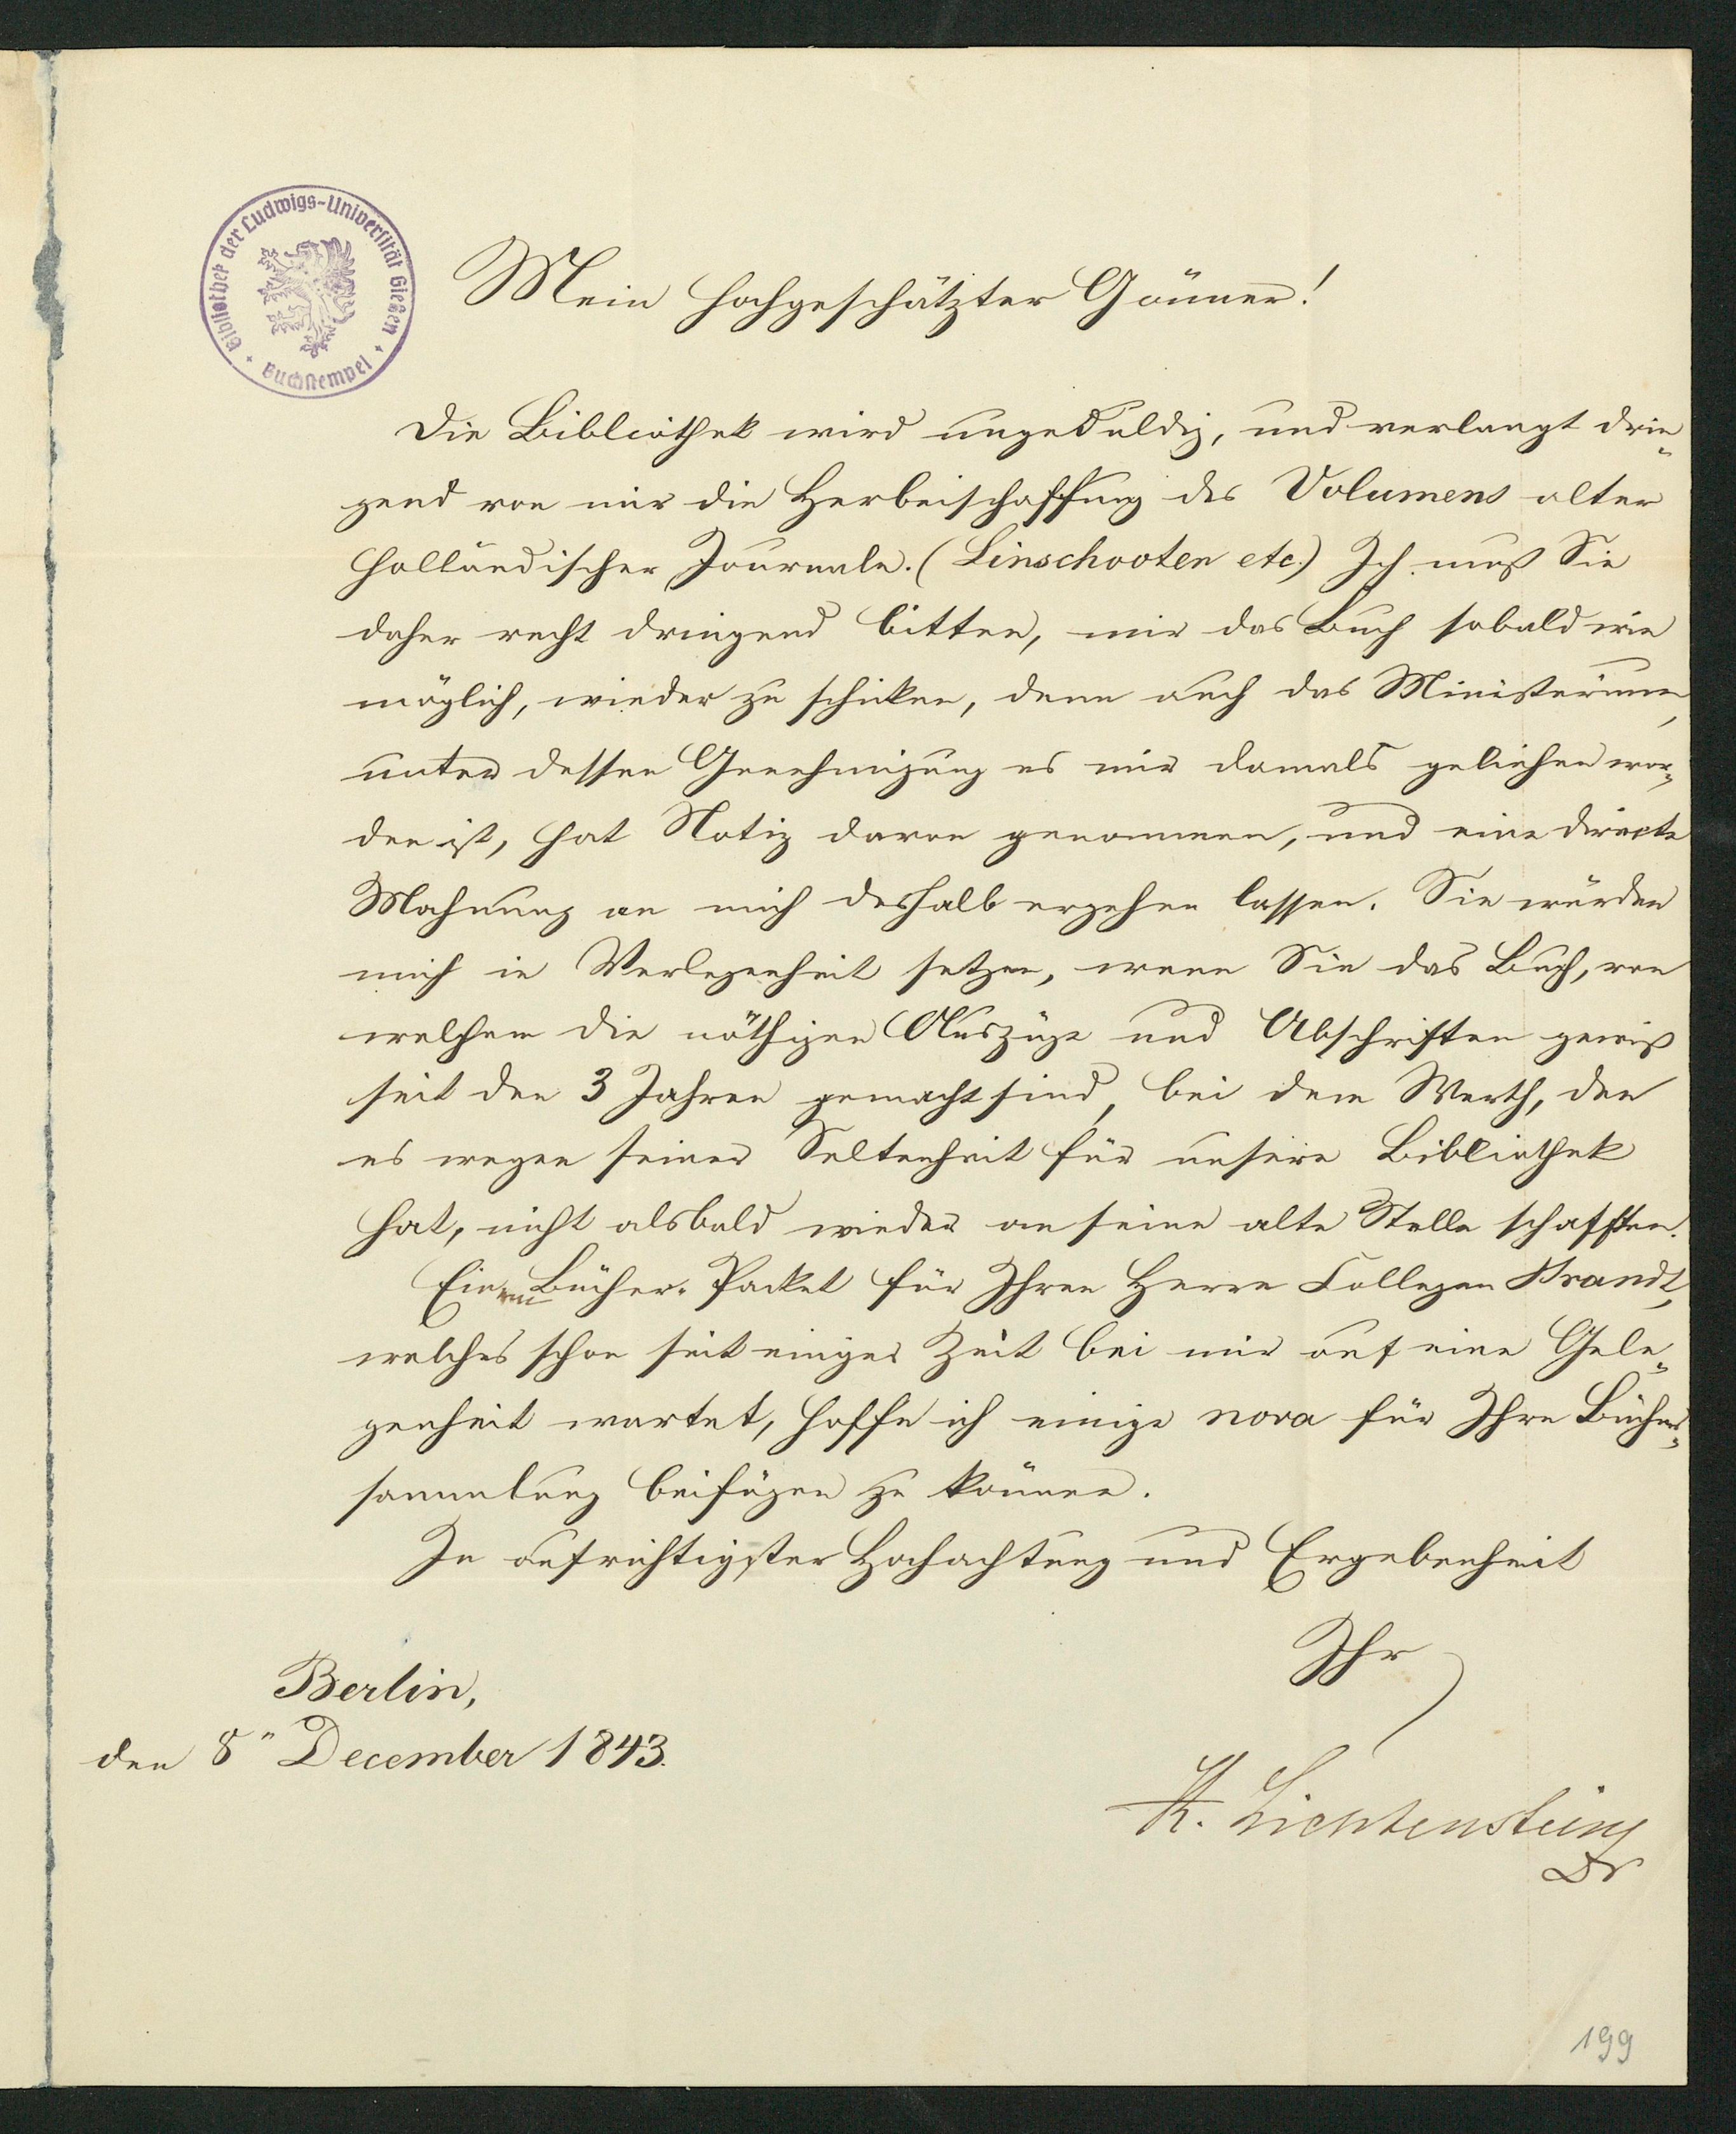 Bibliothek der Ludwigs-Universität Gießen
Buchstempel
Mein hochgeschätzter Gönner!
Die Bibliothek wird ungeduldig, und verlangt drin-
gend von mir die Herbeischaffung des Volumens alter
holländischer Journale. (Linschooten etc.) Ich muß Sie
daher recht dringend bitten, mir das Buch sobald wie
möglich, wieder zu schicken, denn auch das Ministerium,
unter dessen Genehmigung es mir damals geliehen wor-
den ist, hat Notiz davon genommen, und eine directe
Mahnung an mich deshalb ergehen lassen. Sie würden
mich in Verlegenheit setzen, wenn Sie das Buch, von
welchem die nöthigen Auszüge und Abschriften gewiß
seit den 3 Jahren gemacht sind, bei dem Werth, den
es wegen seiner Seltenheit für unsere Bibliothek
hat, nicht alsbald wieder an seine alte Stelle schafften.
Einem Bücher-Packet für Ihren Herrn Collegen Brandt,
welches schon seit einiger Zeit bei mir auf eine Gele-
genheit wartet, hoffe ich einige nova für Ihre Bücher-
sammlung beifügen zu können.
In aufrichtigster Hochachtung und Ergebenheit
Ihr
Berlin,
den 8n December 1843.
H. Lichtenstein
Dr
199